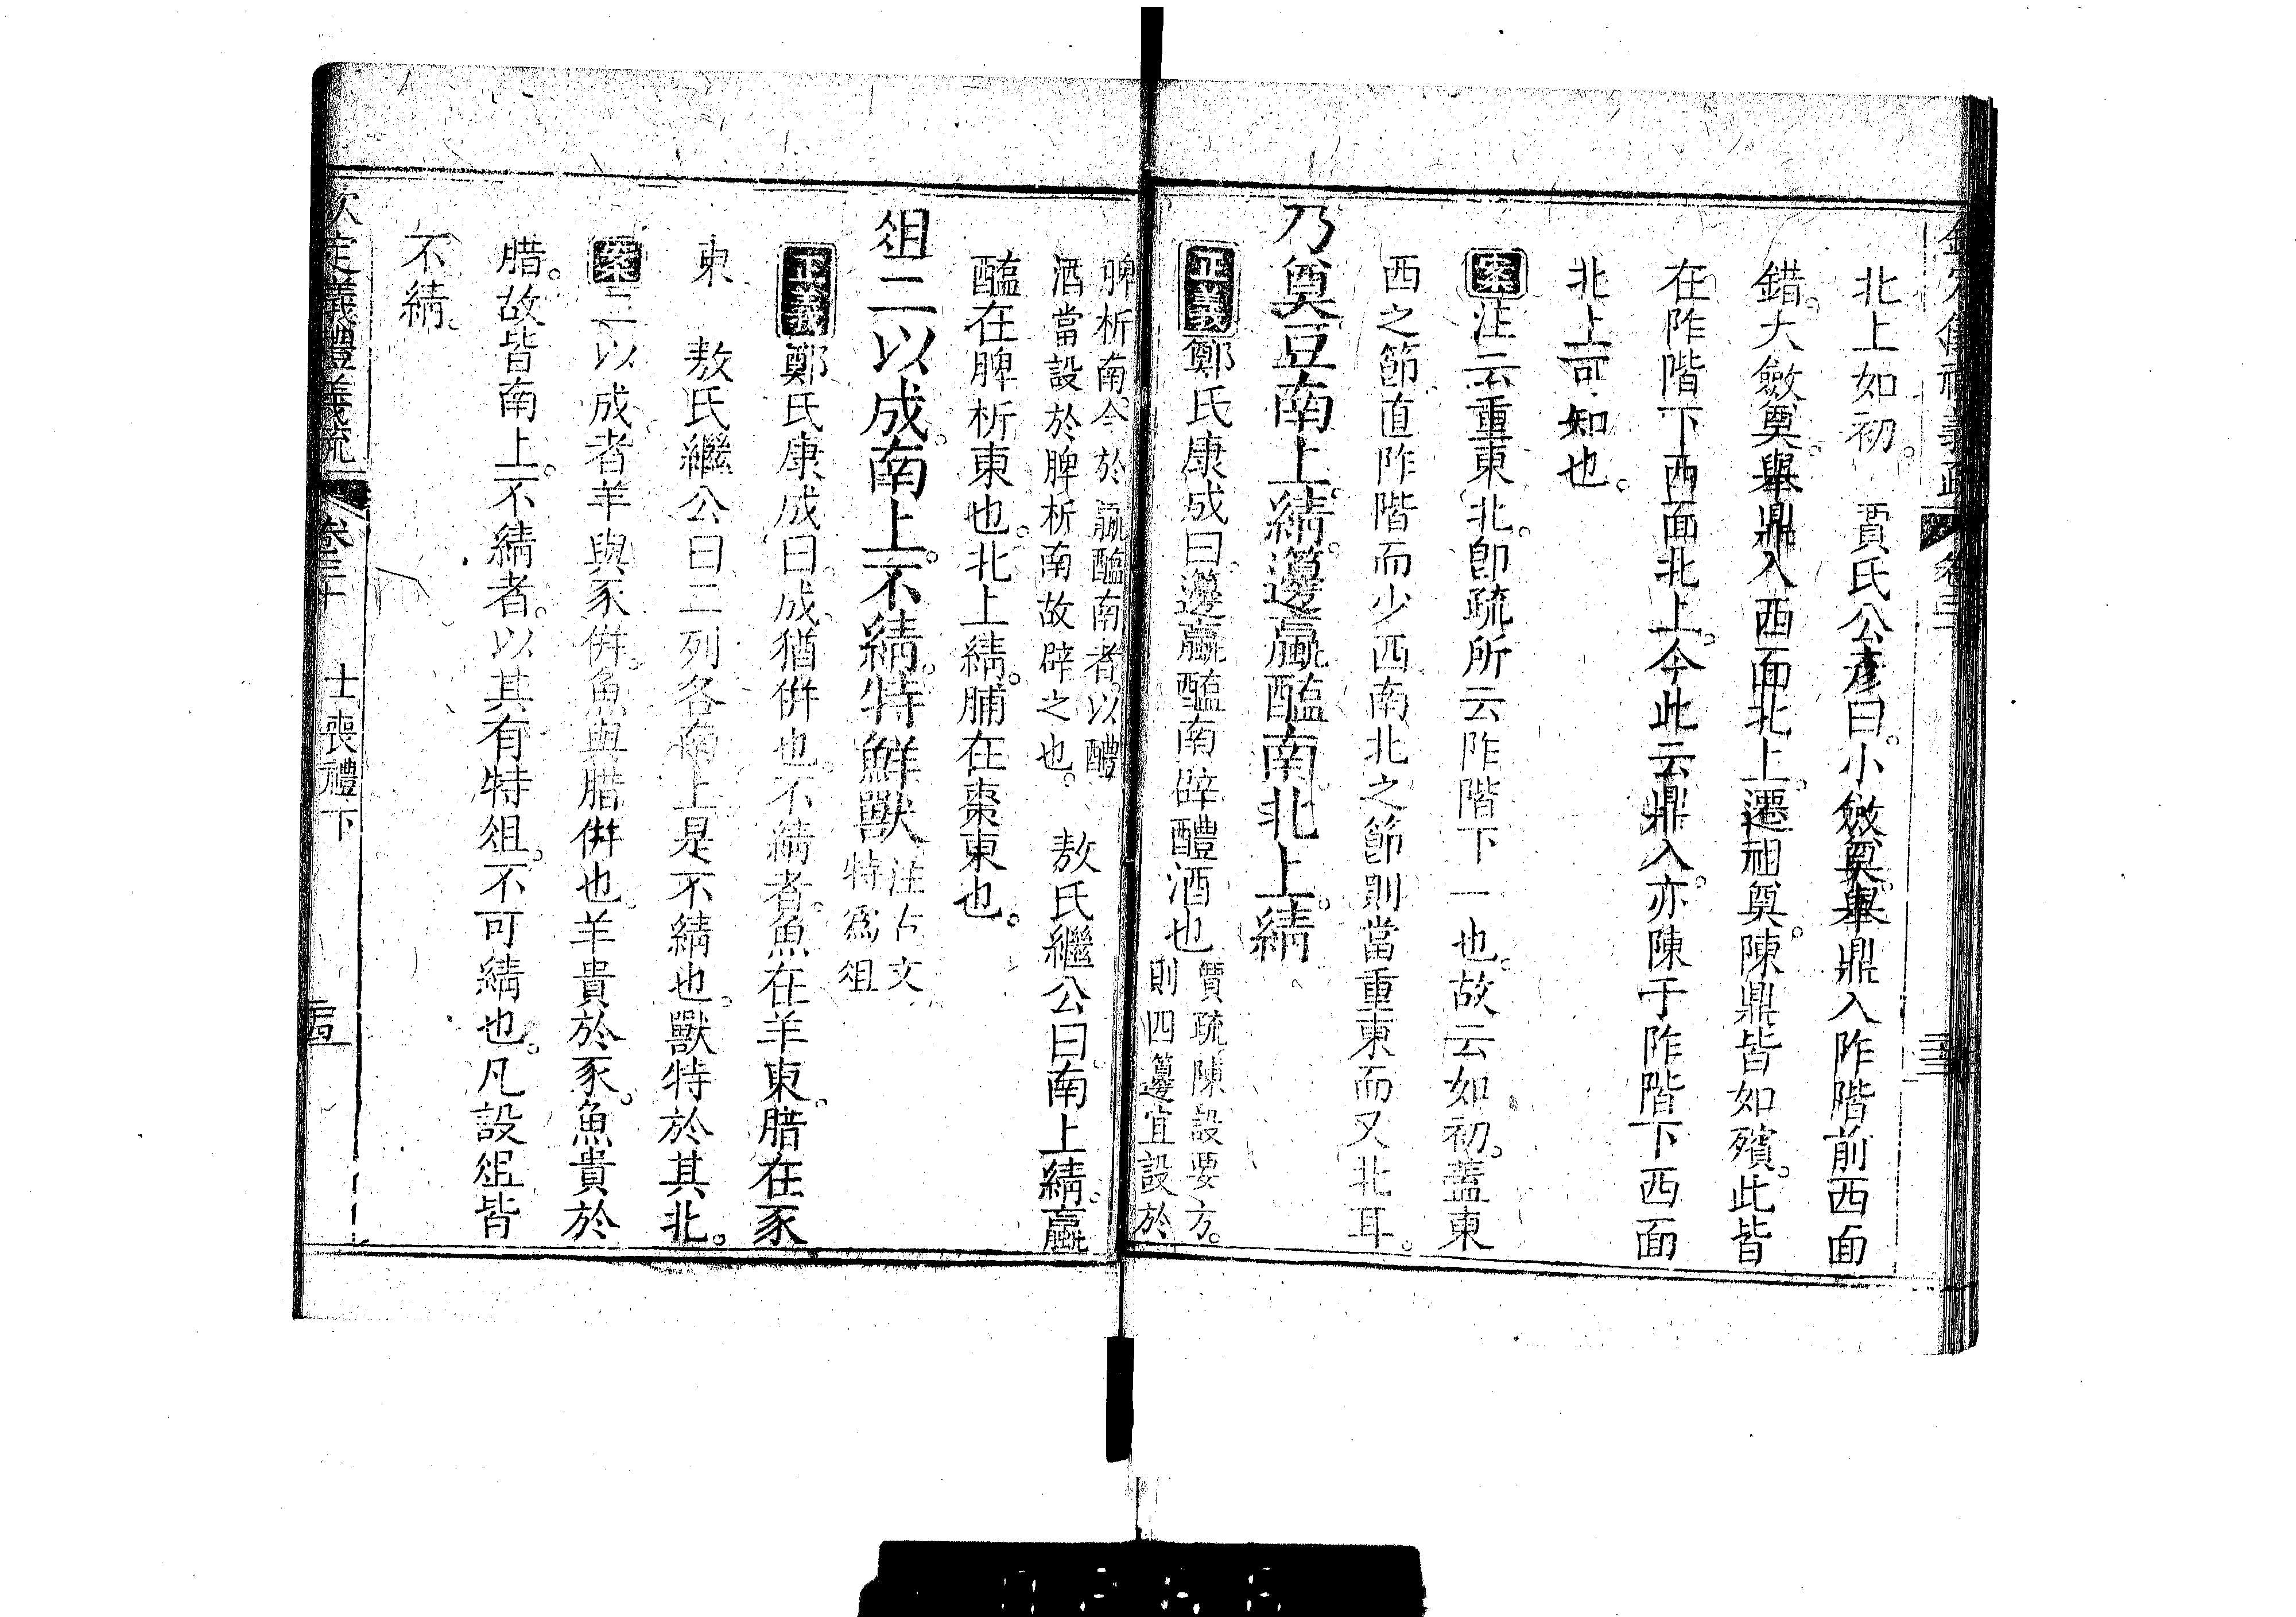 北上如初。　賈氏公彥曰。小斂奠。舉鼎入阼階前西面
錯。大斂奠。舉鼎入西面北上。遷祖奠。陳鼎皆如殯。此皆
在阼階下西面北上。今此云鼎入。亦陳于阼階下西面
北上可知也。
案注云重東北。卽疏所云阼階下一也。故云如初。蓋東
西之節。直阼階而少西。南北之節。則當重東而又北耳。
乃奠豆南上。綪。籩蠃醢南。北上。綪。
正義鄭氏康成曰。籩蠃醢南。辟醴酒也。賈疏。陳設要方。
則四籩宜設於
脾析南。今於蠃醢南者。以醴
酒當設於脾析南。故辟之也。　敖氏繼公曰。南上綪。蠃
醢在脾析東也。北上綪。脯在棗東也。
俎二以成。南上。不綪。特鮮獸。注古文
特爲俎
正義鄭氏康成曰。成。猶併也。不綪者。魚在羊東。腊在豕
東　敖氏繼公曰。二列各南上。是不綪也。獸特於其北。
案二以成者。羊與豕併。魚與腊併也。羊貴於豕。魚貴於
腊。故皆南上。不綪者。以其有特俎。不可綪也。凡設俎皆
不綪。
欽定義禮義疏　卷三十　士喪禮下